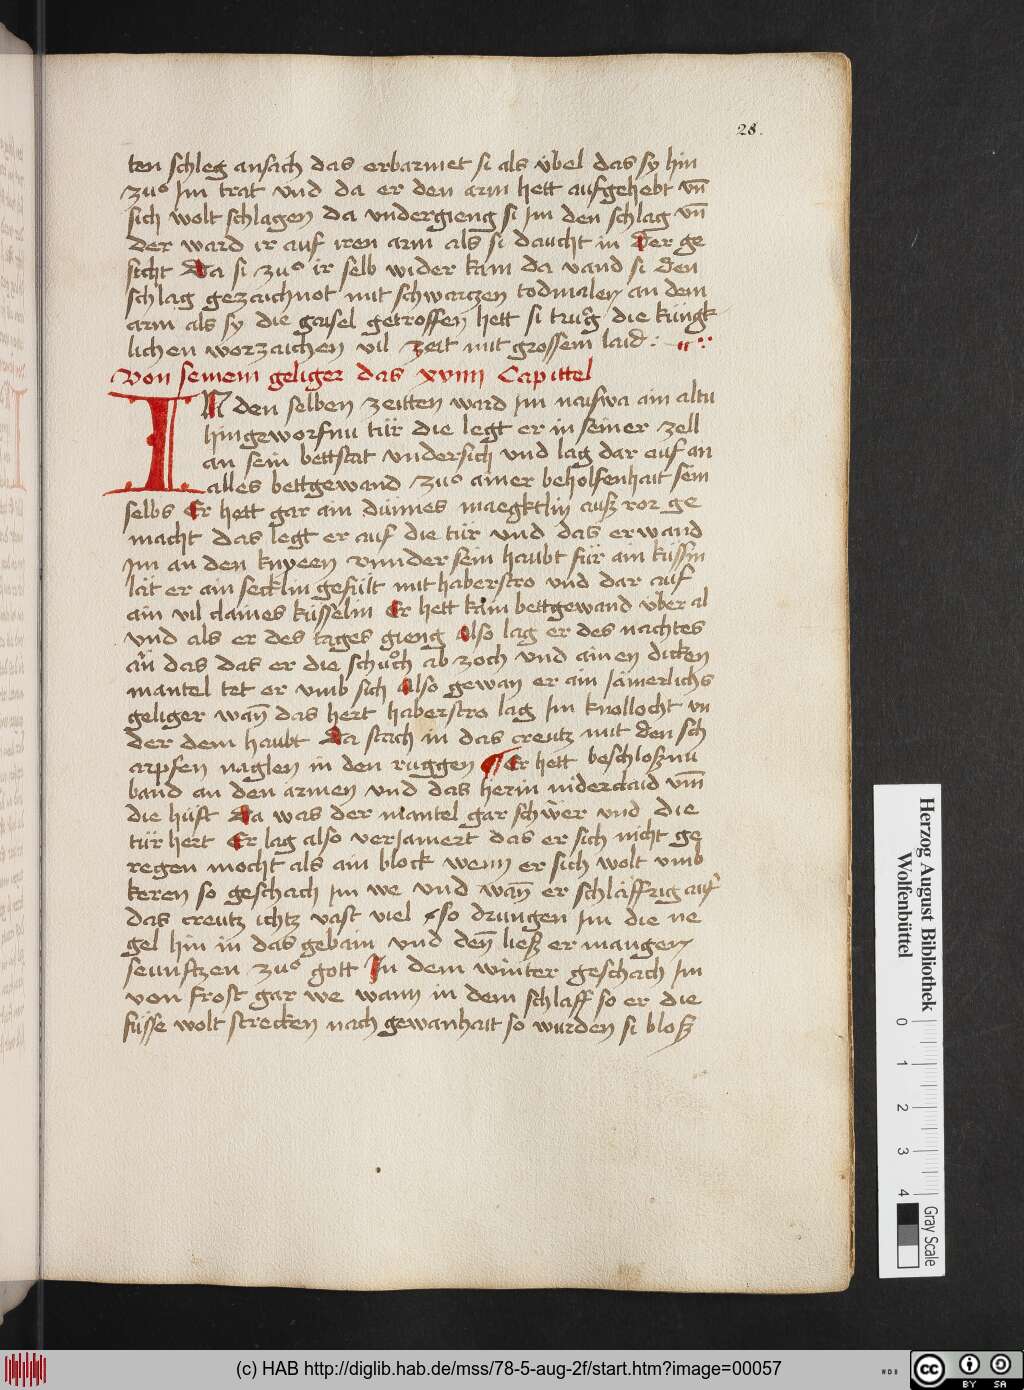 28.
ten schleg ansach das erbarmet si als übel das sy hin
zuo im trat vnd da er den arm hett aufgehebt vn̄
sich wolt schlagen da vndergieng si im den schlag vn̄
der ward ir auf iren arm als si daucht in der ge
sicht Da si zuo ir selb wider kam da vand si den
schlag gezaichnot mit schwarczen todmalen an dem
arm als sy die gaisel getroffen hett si truog die küngk
lichen worzaichen vil zeit mit grossem laid :
Von seinem geliger das xviiii Capittel
IN den selben zeitten ward im nuſwa ain altu
hingeworfnu tür die legt er in seiner zell
an sein bettstat vndersich vnd lag dar auf an
alles bettgewand zuo ainer beholfenhait sein
selbs Er hett gar ain dünnes maegktlin auß ror ge
macht das legt er auf die tür vnd das erwand
im an den knyeen vnnder sein haubt für ain küssin
lät er ain secklin gefült mit haberstro vnd dar auf
ain vil claines küsselin Er hett kain bettgewand über al
vnd als er des tages gieng also lag er des nachtes
an̄ das das er die schuoch ab zoch vnd ainen dicken
mantel tet er vmb sich also gewan er ain jämerlichs
geliger wan̄ das hert haberstro lag im knollocht vn
der dem haubt Da stach in das creutz mit den sch
arpfen naglen in den ruggen Er hett beschloßnu
band an den armen vnd das herin niderclaid vm̄
die hüft Da was der mantel gar schwer vnd die
tür hert Er lag also verjamert das er sich nicht ge
regen mocht als ain block wenn er sich wolt vmb
keren so geschach im we vnd wan̄ er schläffrig auf
das creutz ichtz vast viel so drungen im die ne
gel hin in das gebain vnd den̄ ließ er mangen
seunftzen zuo gott In dem winter geschach im
von frost gar we wann in dem schlaff so er die
füsse wolt strecken nach gewanhait so wurden si bloß
Herzog August Bibliothek
Wolfenbüttel
0 1 2 3 4
Gray Scale
(c) HAB http://diglib.hab.de/mss/78-5-aug-2f/start.htm?image=00057
WDB
cc BY SA